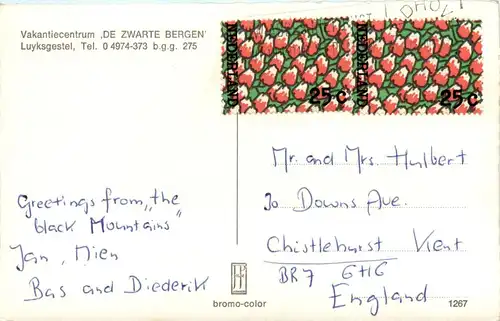 Vakantiecentrum ‚DE ZWARTE BERGEN'
Luyksgestel, Tel. 0 4974-373 b.g.g. 275
NEDERLAND
25 c
NEDERLAND
25 c
Greetings from „the
black Mountains"
Jan, Mien
Bas and Diederik
Mr. and Mrs. Hulbert
Downs Ave.
Chistlehurst Kent
BR7 6HG
England
bromo-color
1267